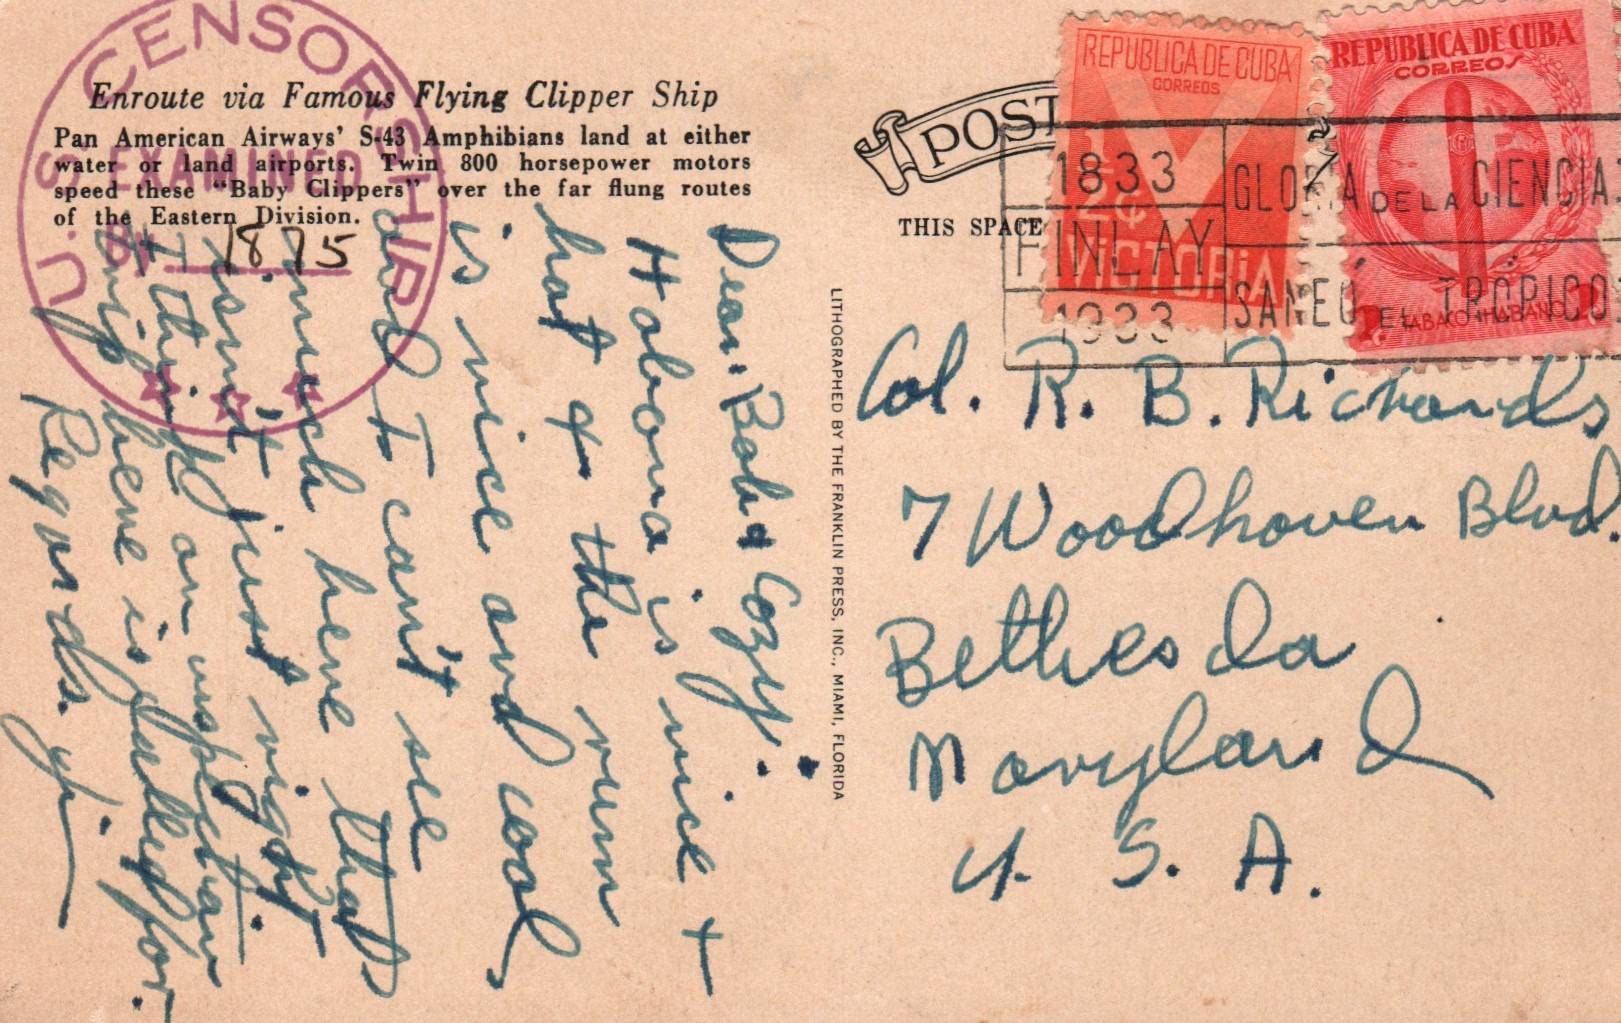 U.S. CENSORSHIP
EXAMINED
BY 1875
Enroute via Famous Flying Clipper Ship
Pan American Airways' S-43 Amphibians land at either
water or land airports. Twin 800 horsepower motors
speed these "Baby Clippers" over the far flung routes
of the Eastern Division.
Dear Bob & Cozy:
Habana is nice +
hot & the rum
is nice and cool
and I can't see
much here that
isn't just right.
I think an inspection
trip here is called for.
Regards.
LITHOGRAPHED BY THE FRANKLIN PRESS, INC., MIAMI, FLORIDA
POST
THIS SPACE
REPUBLICA DE CUBA
CORREOS
1/2¢
VICTORIA
REPUBLICA DE CUBA
CORREOS
TABACO HABANO
1833
FINLAY
1933
GLORIA DE LA CIENCIA.
SANEÓ EL TRÓPICO
Col. R. B. Richards
7 Woodhaven Blvd.
Bethesda
Maryland
U. S. A.